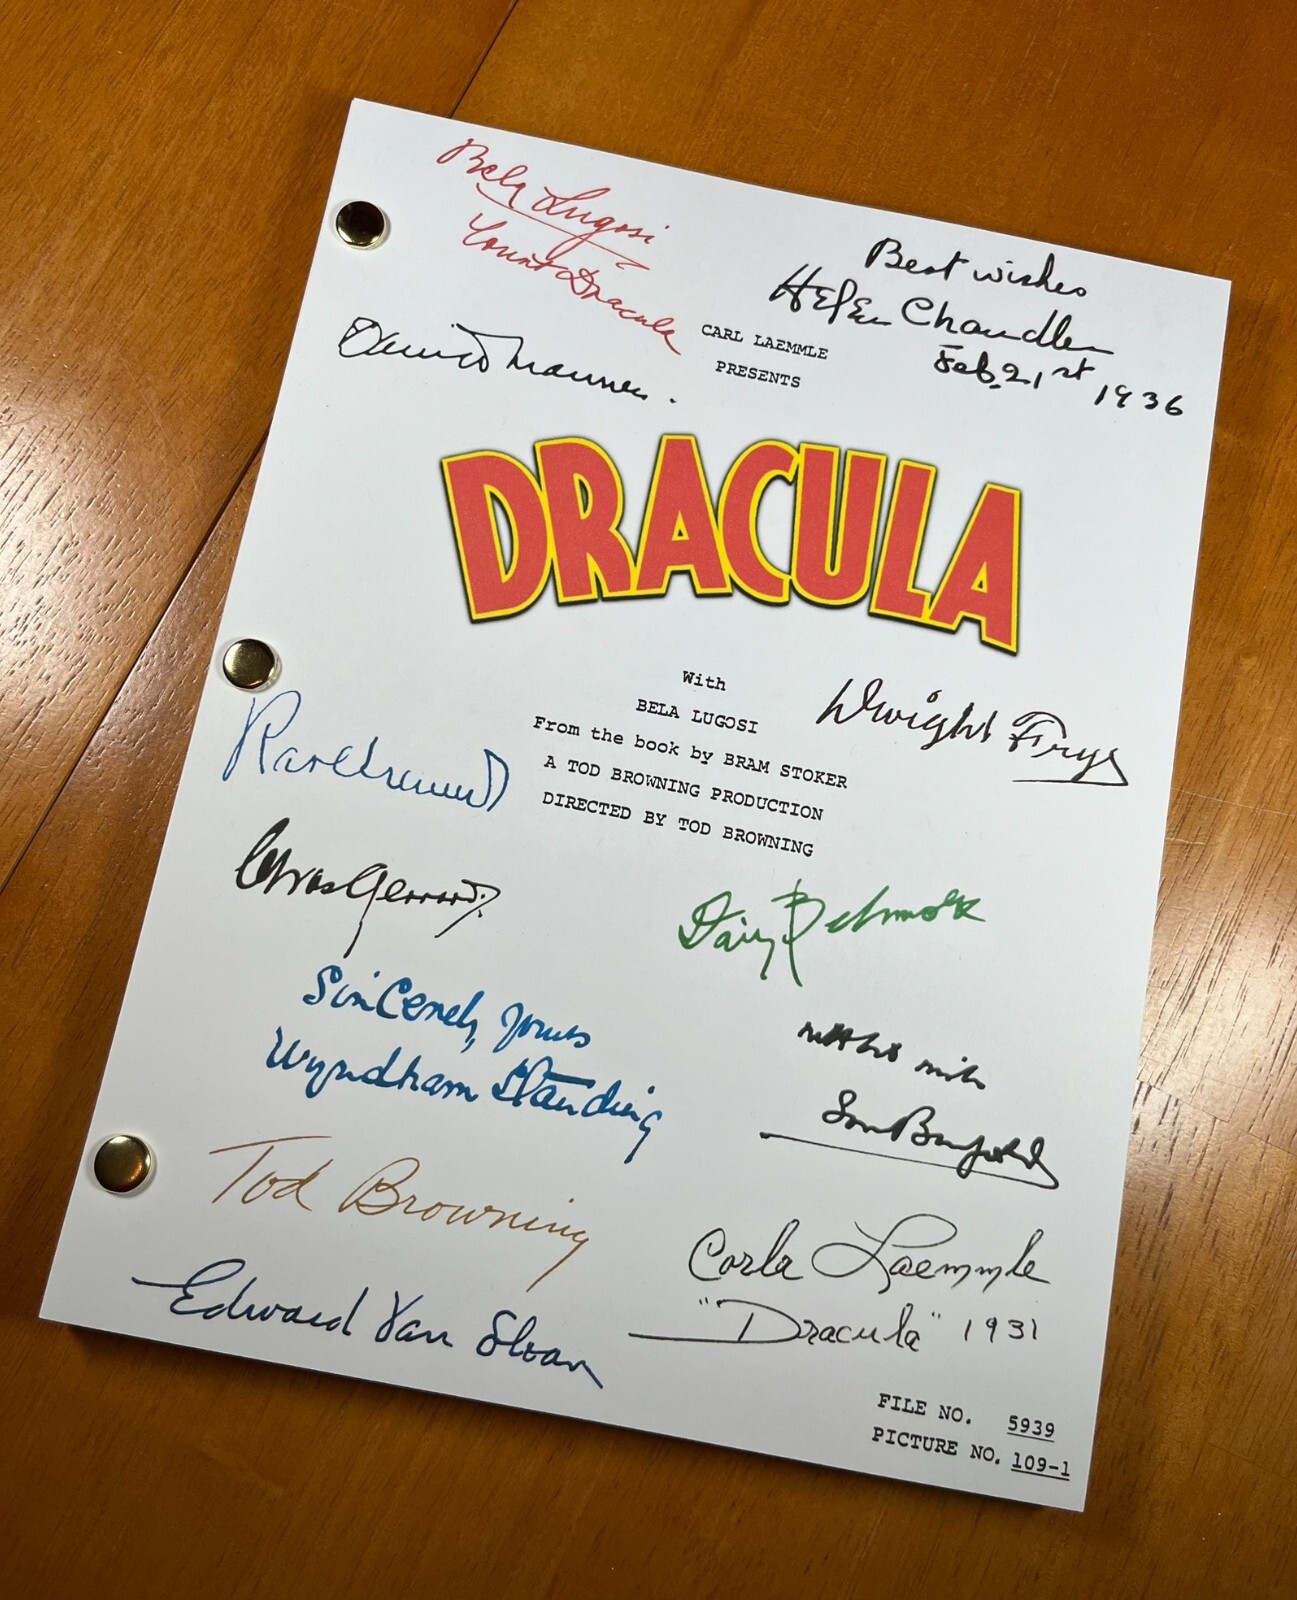 Bela Lugosi
Count Dracula
Best wishes
Helen Chandler
Feb. 21st 1936
David Manners.
CARL LAEMMLE
PRESENTS
DRACULA
With
BELA LUGOSI
From the book by BRAM STOKER
A TOD BROWNING PRODUCTION
DIRECTED BY TOD BROWNING
Dwight Frye
Karl Freund
Chas Gerrard
Daisy Belmore
Sincerely yours
Wyndham Standing
Tod Browning
Edward Van Sloan
Carla Laemmle
"Dracula" 1931
FILE NO. 5939
PICTURE NO. 109-1